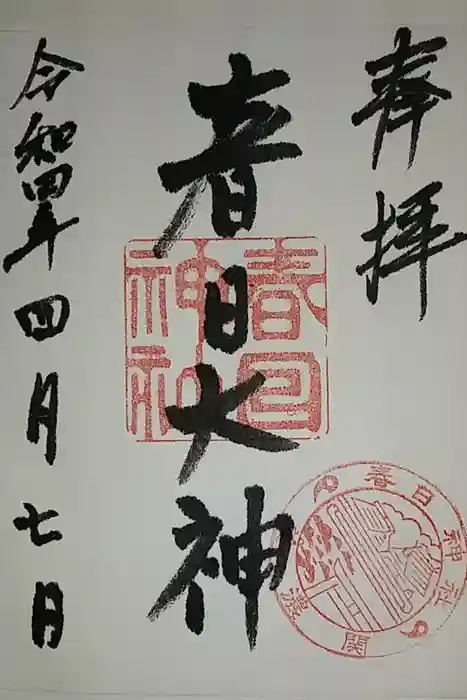 奉拝
春日大神
令和四年四月七日
春日
神社
春日神社